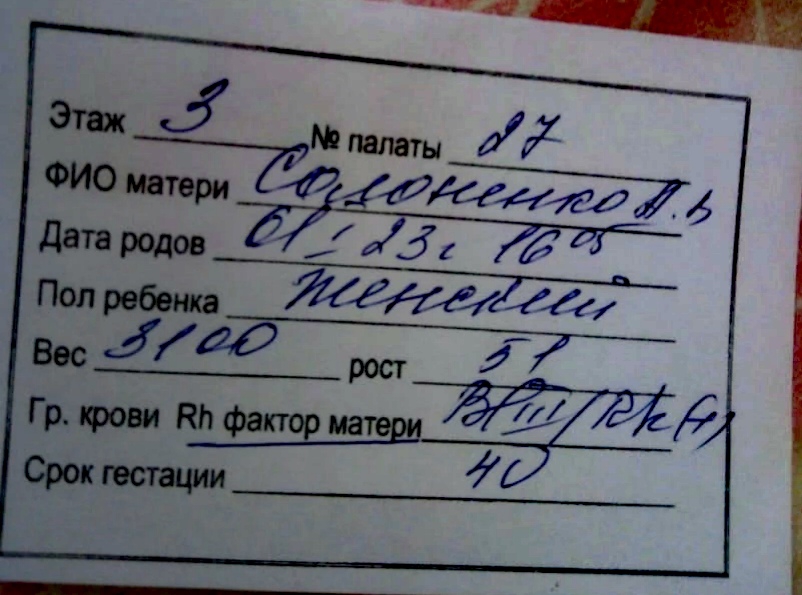 Этаж 3 № палаты 27
ФИО матери Солоненко А.В
Дата родов 01 I 23г 16 05
Пол ребенка женский
Вес 3100 рост 51
Гр. крови Rh фактор матери B(III) Rh(+)
Срок гестации 40